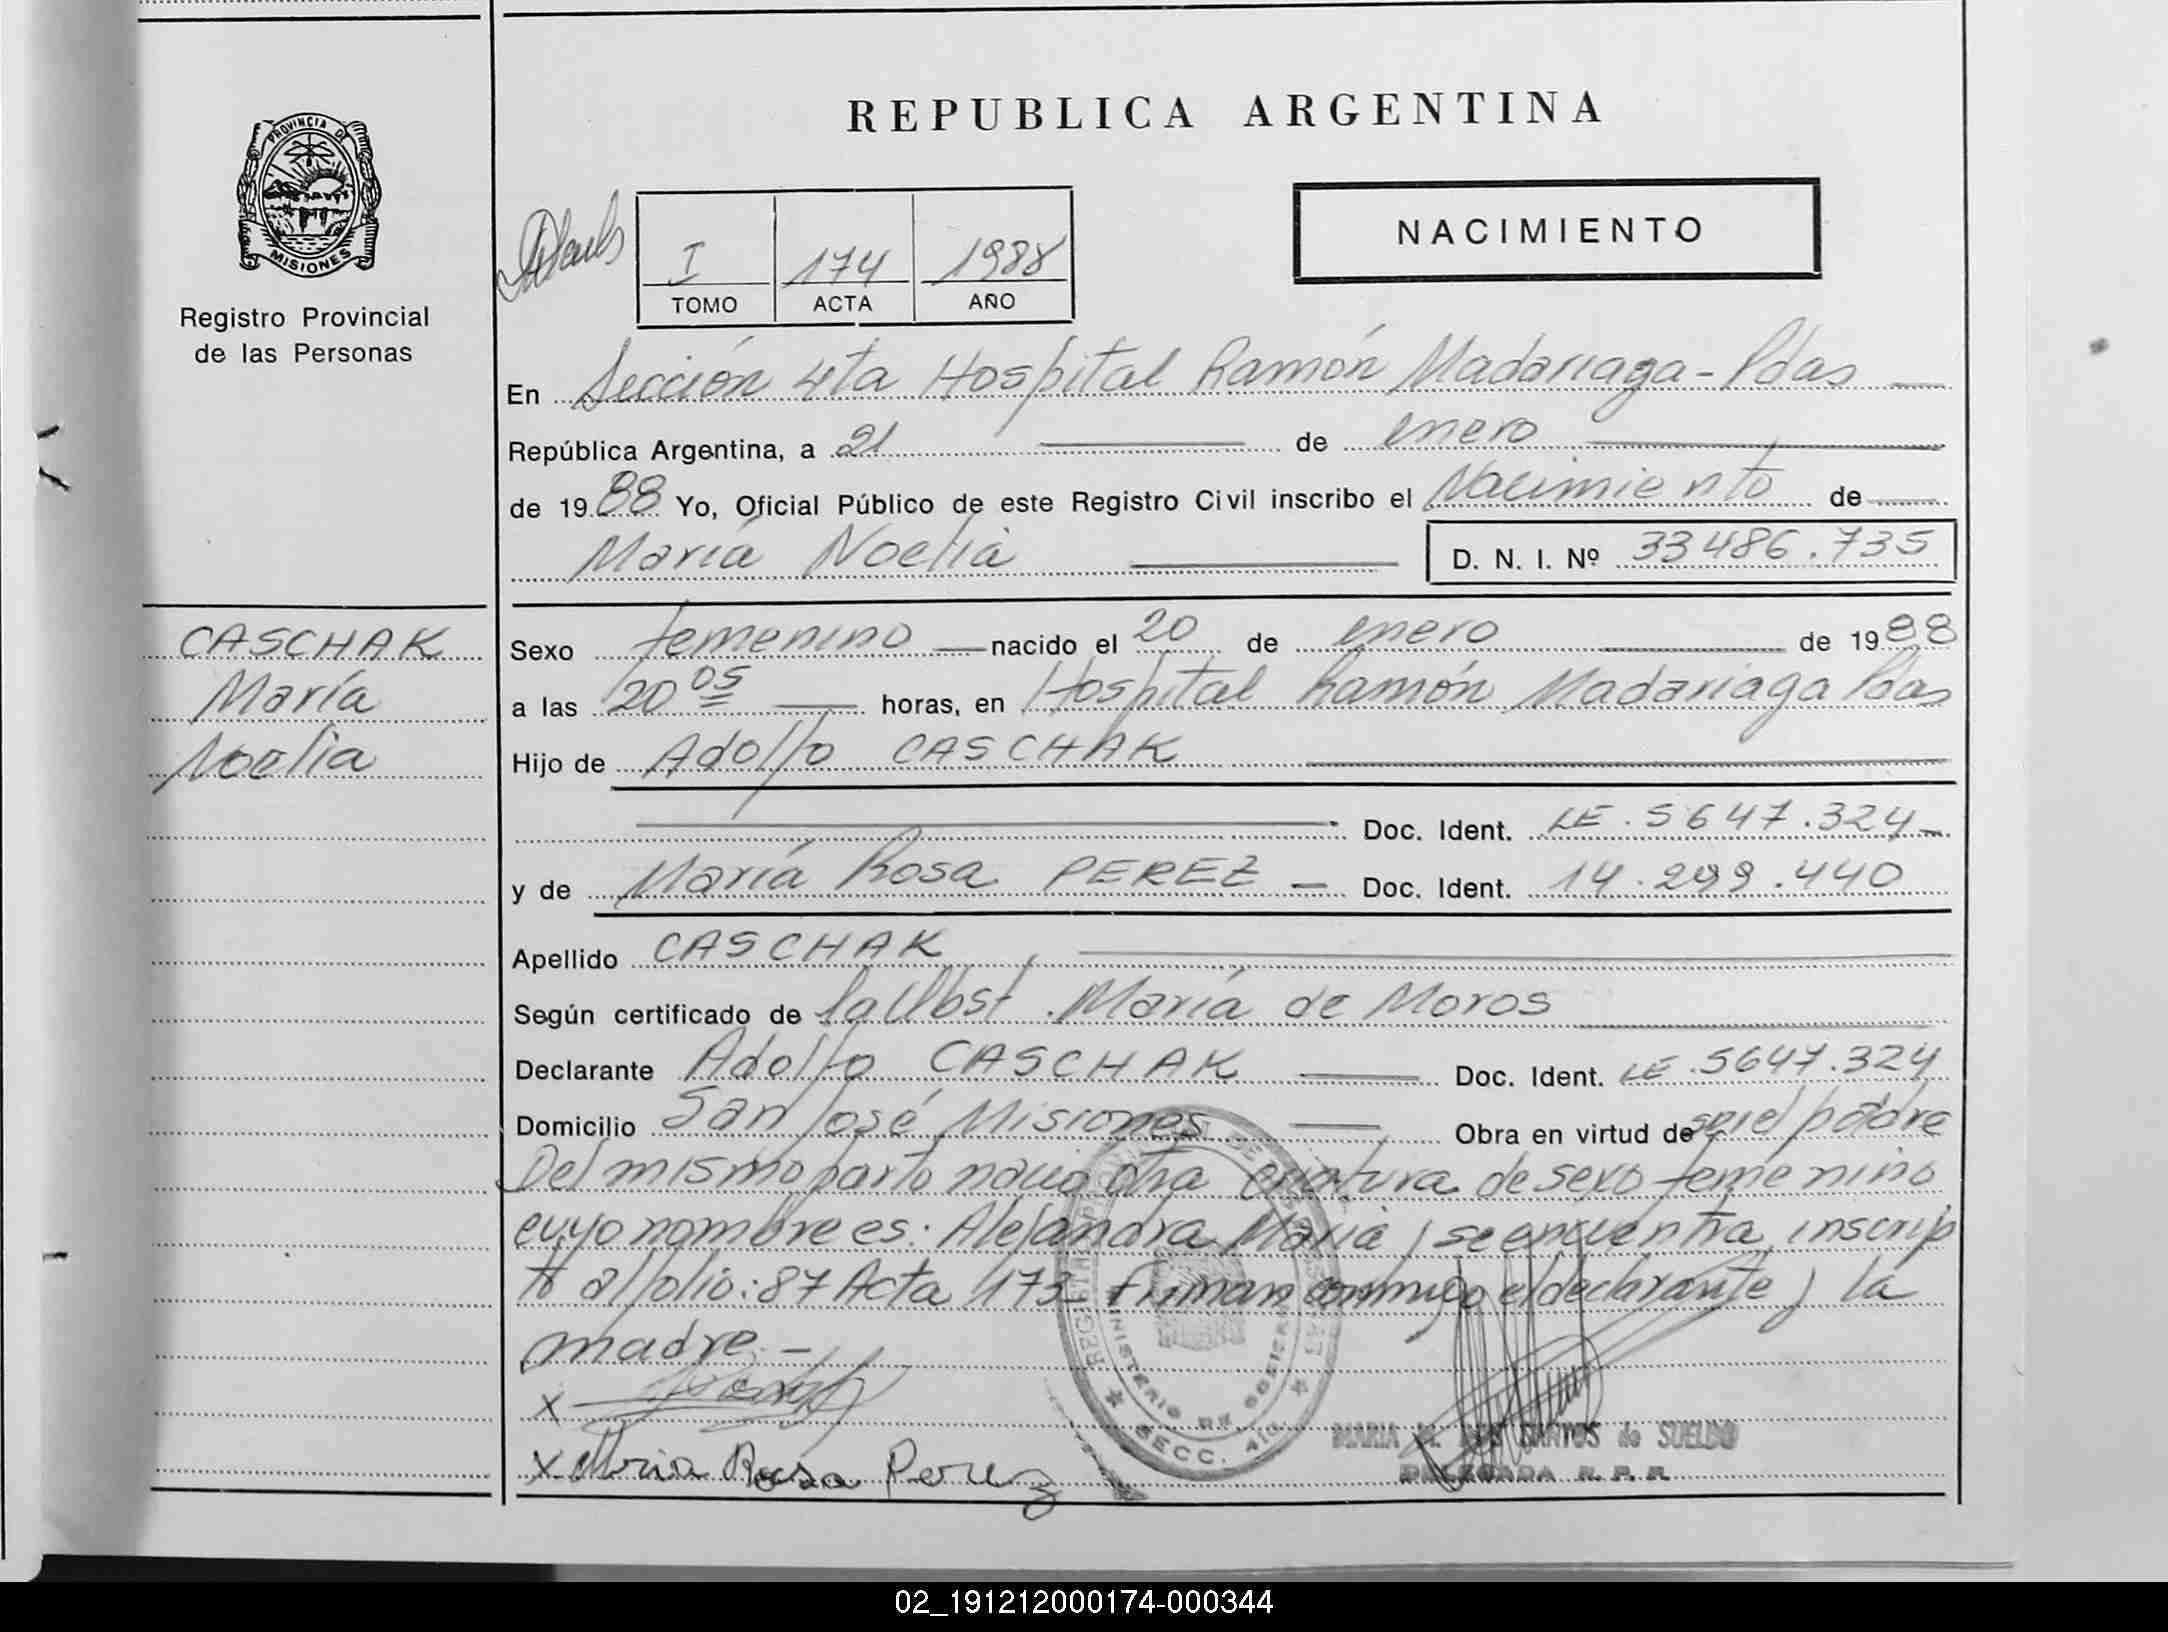 REPUBLICA ARGENTINA
PROVINCIA DE
MISIONES
Registro Provincial
de las Personas
I 174 1988
TOMO ACTA AÑO
NACIMIENTO
En Sección 4ta Hospital Ramón Madariaga - Pdas
República Argentina, a 21 de enero
de 19 88 Yo, Oficial Público de este Registro Civil inscribo el Nacimiento de
María Noelia D. N. I. Nº 33486.735
CASCHAK
María
Noelia
Sexo femenino nacido el 20 de enero de 19 88
a las 20 05 horas, en Hospital Ramón Madariaga Pdas
Hijo de Adolfo CASCHAK
Doc. Ident. LE. 5647.324
y de María Rosa PEREZ - Doc. Ident. 14.299.440
Apellido CASCHAK
Según certificado de la Obst. María de Moros
Declarante Adolfo CASCHAK Doc. Ident. LE. 5647.324
Domicilio San José Misiones Obra en virtud de ser el padre
Del mismo parto nació otra criatura de sexo femenino
cuyo nombre es: Alejandra María y se encuentra inscrip
to al folio: 87 Acta 173 - Firman conmigo el declarante y la
madre. -
x
x Maria Rosa Perez
SECC. 4ta
MINISTERIO DE GOBIERNO
MARIA M. DOS SANTOS de SUELDO
DELEGADA R. P. P.
02_191212000174-000344